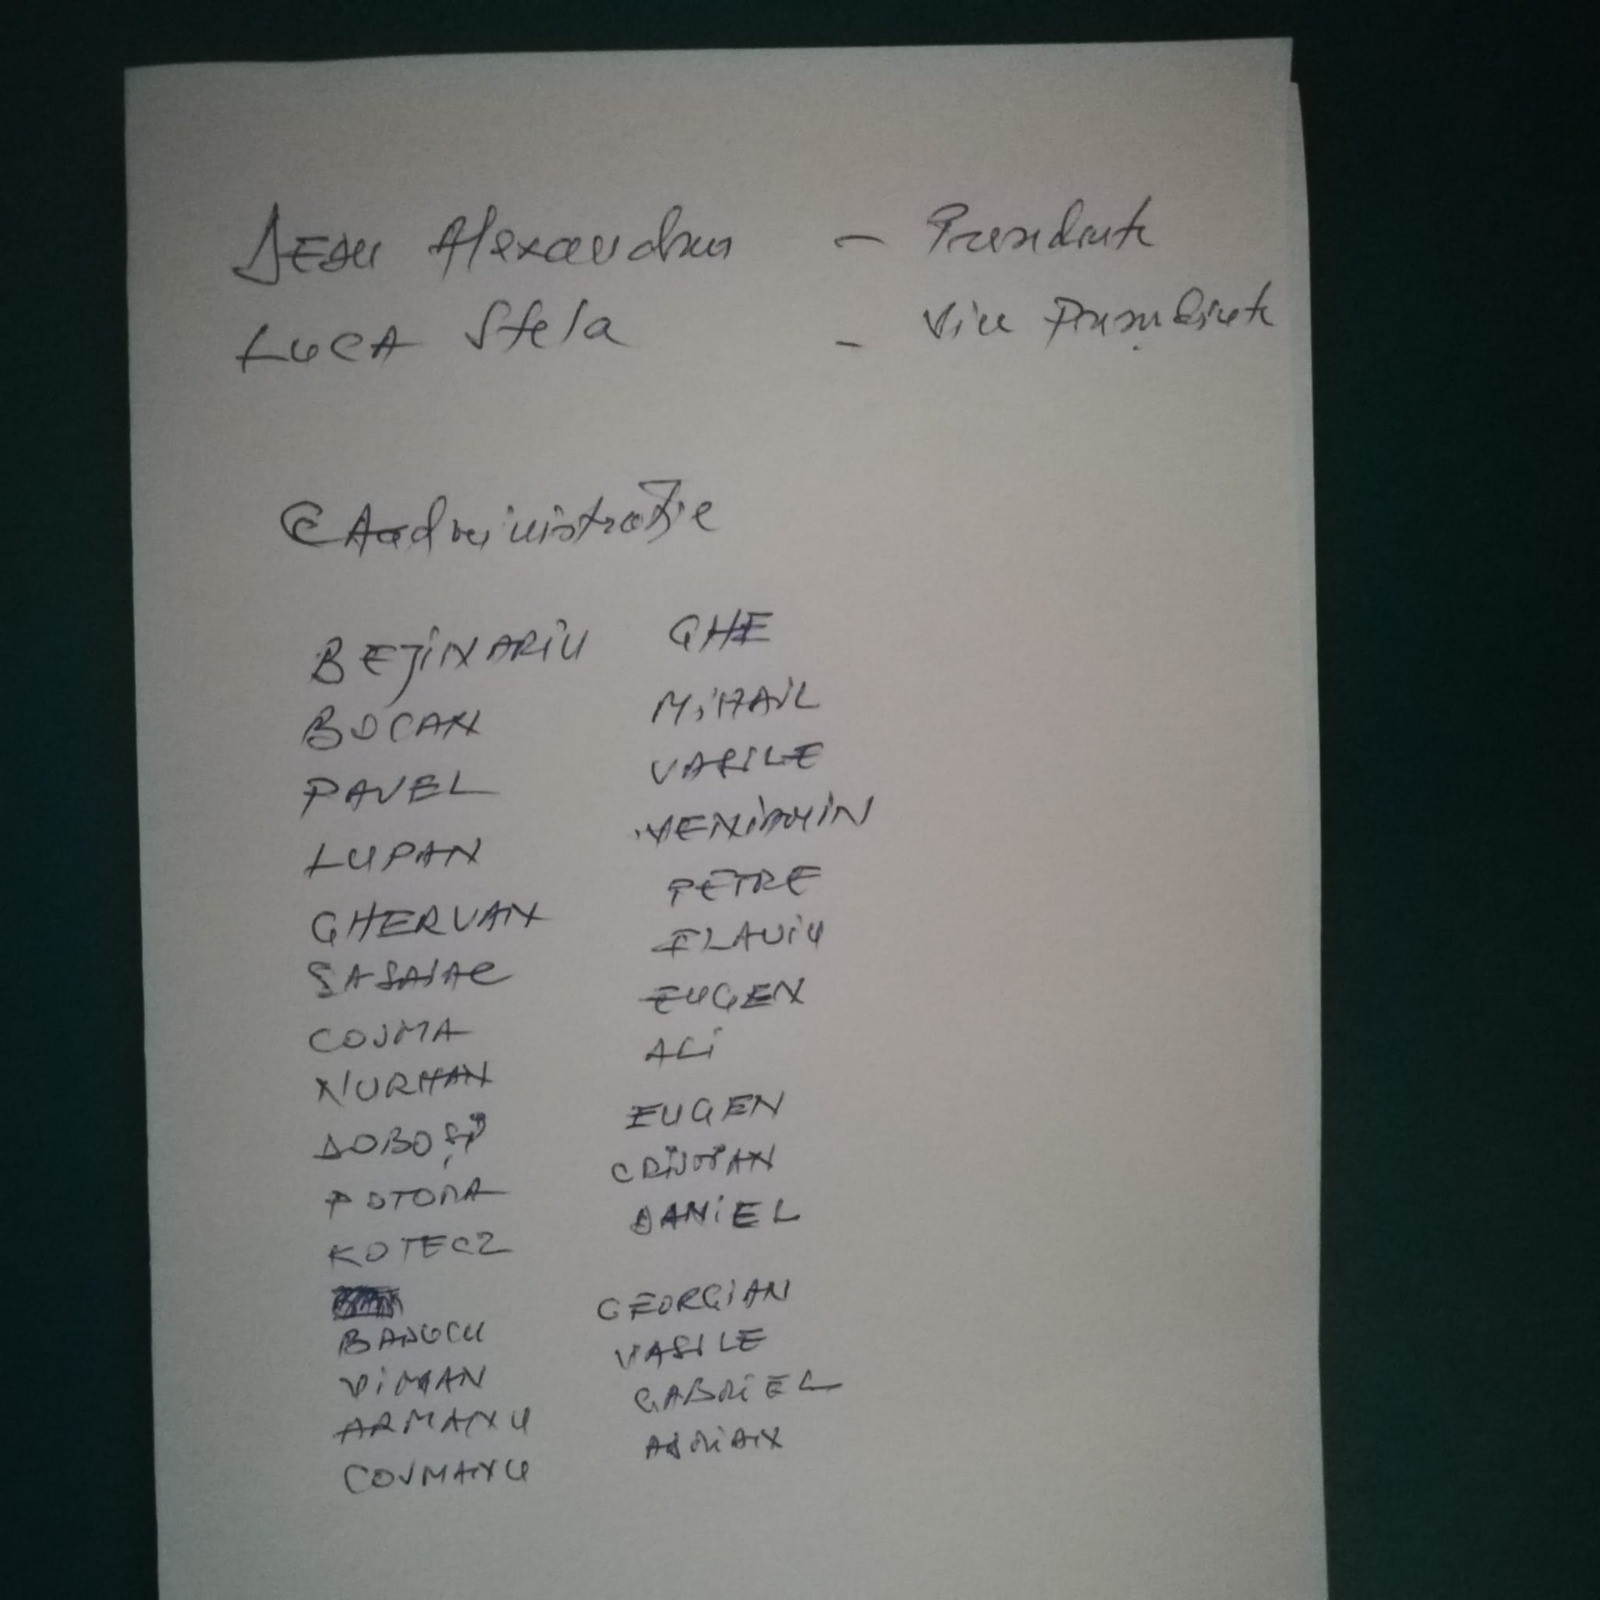 Alexandru - Presedinte
LUCA Stela - Vice Presedinte
Administrație
BEJINARIU GHE
BOCAN MIHAIL
PAVEL VASILE
LUPAN VENIAMIN
GHERVAN PETRE
FLAVIU
COSMA EUGEN
NURHAN ALI
DOBOȘI EUGEN
POTORA CRISTIAN
KOTECZ DANIEL
GEORGIAN
VIMAN VASILE
ARMANU GABRIEL
COSMANU ADRIAN